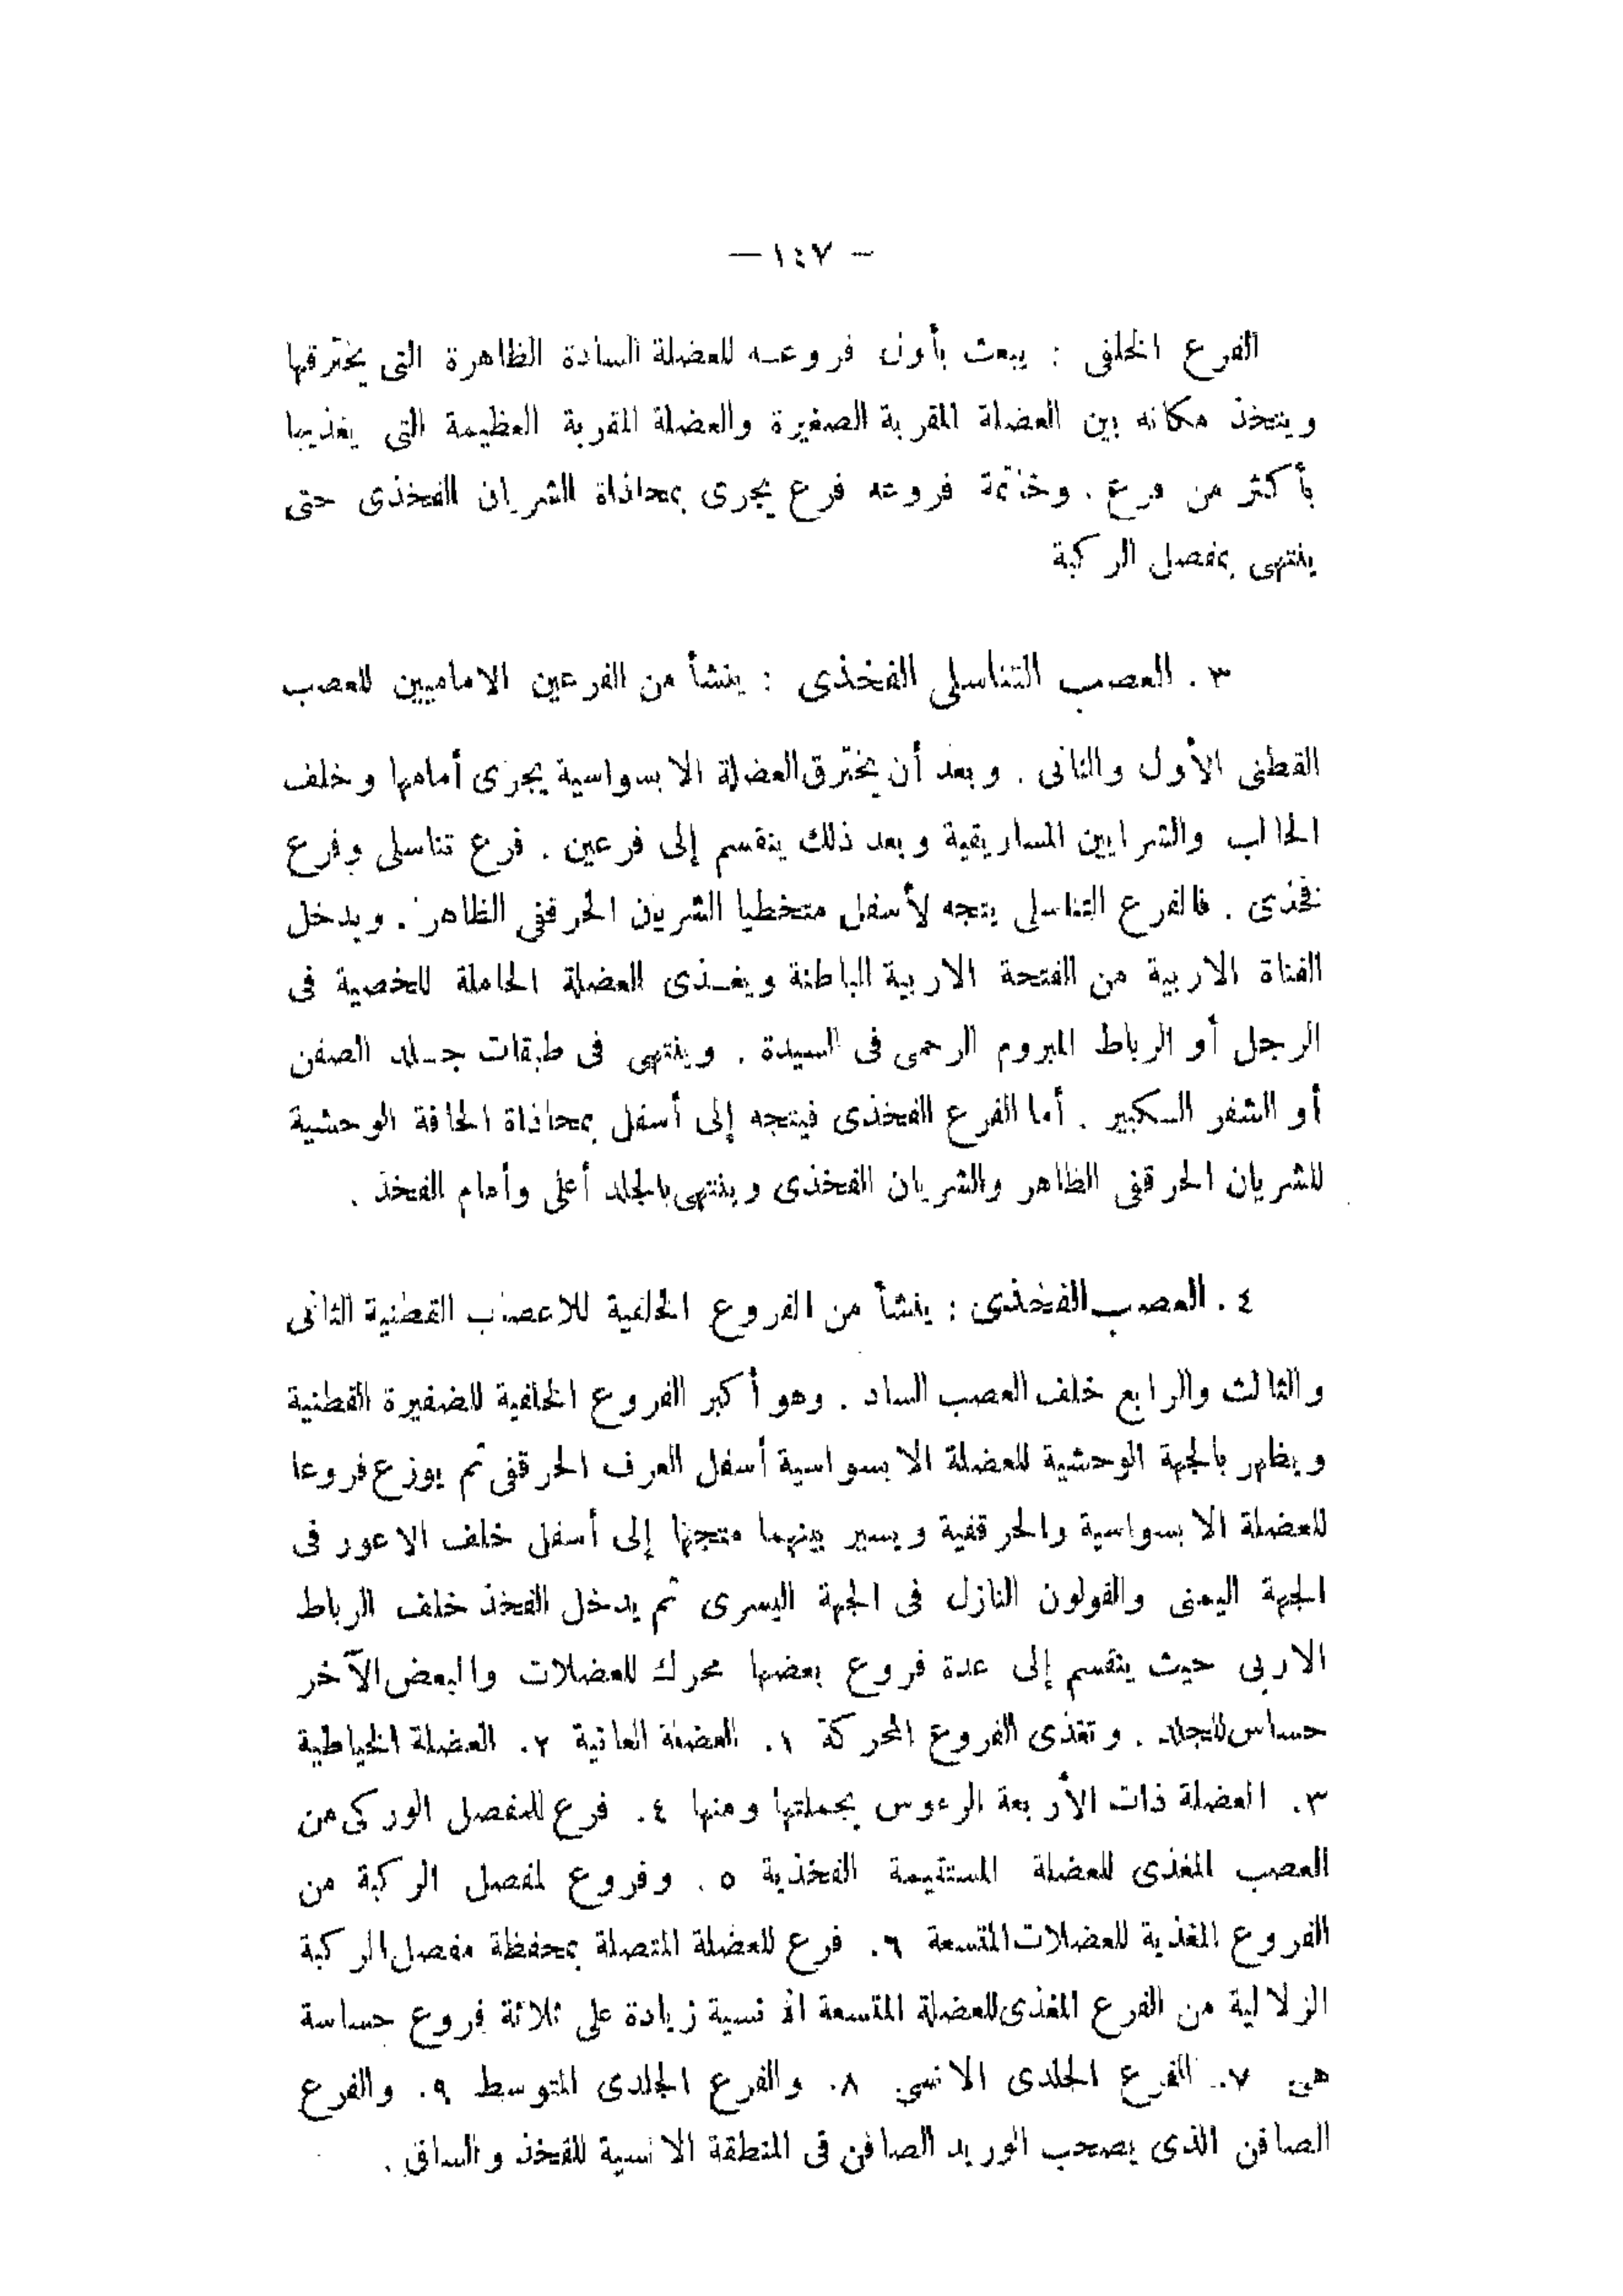 — ١٤٧ —
الفرع الخلفى : يبعث بأول فروعه للعضلة السادة الظاهرة التى يخترقها
ويتخذ مكانه بين العضلة المقربة الصغيرة والعضلة المقربة العظيمة التى يغذيها
بأكثر من فرع . وخاتمة فروعه فرع يجرى بمحاذاة الشريان الفخذى حتى
ينتهى بمفصل الركبة
٣ . العصب التناسلى الفخذى : ينشأ من الفرعين الاماميين للعصب
القطنى الأول والثانى . وبعد أن يخترق العضلة الابسواسية يجرى أمامها وخلف
الحالب والشرايين المساريقية وبعد ذلك ينقسم إلى فرعين . فرع تناسلى وفرع
فخذى . فالفرع التناسلى يتجه لأسفل متخطيا الشريان الحرقفى الظاهر . ويدخل
القناة الاربية من الفتحة الاربية الباطنة ويغذى العضلة الحاملة للخصية فى
الرجل أو الرباط المبروم الرحمى فى السيدة . وينتهى فى طبقات جلد الصفن
أو الشفر الكبير . أما الفرع الفخذى فيتجه إلى أسفل بمحاذاة الحافة الوحشية
للشريان الحرقفى الظاهر والشريان الفخذى وينتهى بالجلد أعلى وأمام الفخذ .
٤ . العصب الفخذى : ينشأ من الفروع الخلفية للاعصاب القطنية الثانى
والثالث والرابع خلف العصب الساد . وهو أكبر الفروع الخلفية للضفيرة القطنية
ويظهر بالجهة الوحشية للعضلة الابسواسية أسفل العرف الحرقفى ثم يوزع فروعا
للعضلة الابسواسية والحرقفية ويسير بينهما متجها إلى أسفل خلف الاعور فى
الجهة اليمنى والقولون النازل فى الجهة اليسرى ثم يدخل الفخذ خلف الرباط
الاربى حيث ينقسم إلى عدة فروع بعضها محرك للعضلات والبعض الآخر
حساس للجلد . وتغذى الفروع المحركة ١. العضلة العانية ٢. العضلة الخياطية
٣. العضلة ذات الأربعة الرءوس بجملتها ومنها ٤. فرع للمفصل الوركى من
العصب المغذى للعضلة المستقيمة الفخذية ٥. وفروع لمفصل الركبة من
الفروع المغذية للعضلات المتسعة ٦. فرع للعضلة المتصلة بمحفظة مفصل الركبة
الزلالية من الفرع المغذى للعضلة المتسعة الانسية زيادة على ثلاثة فروع حساسة
هى ٧. الفرع الجلدى الانسى ٨. والفرع الجلدى المتوسط ٩. والفرع
الصافن الذى يصحب الوريد الصافن فى المنطقة الانسية للفخذ والساق .